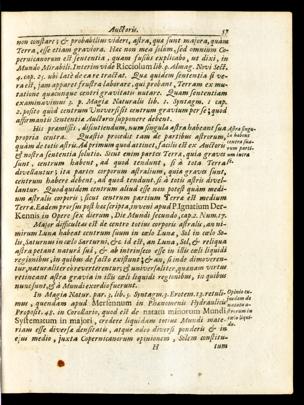 Auctoris. 57
non constare; & probabilius videri, astra, quæ sunt majora, quàm
Terra, esse etiam graviora. Hæc non mea solùm, sed omnium Co-
pernicanorum est sententia, quam fusiùs explicabo, ut dixi, in
Mundo Mirabili. Interim vide Ricciolum lib. 9. Almag. Novi Sect.
4. cap. 25. ubi latè de eare tractat. Qua quidem sententia si ve-
ra est, jam apparet frustra laborare, qui probant, Terram ex mu-
tatione quacunque centri gravitatis nutare. Quam sententiam
examinavimus 3. p. Magiæ Naturalis lib. 1. Syntagm. 1 cap.
2. posito quòd centrum Universi sit centrum gravium per se; quod
affirmantis Sententia Auctoris supponere debent.
His præmissis, discutiendum, num singula astra habeant sua
propria centra. Quæstio procedit tam de partibus astrorum,
quàm de totis astris. Ad primum quod attinet, facilis est ex Auctoris
& nostra sententia solutio. Sicut enim partes Terræ, quia graves
sunt, centrum habent, ad quod tendunt, si à tota Terra
divellantur; ita partes corporum astralium, quia graves sunt,
centrum habere debent, ad quod tendunt, si à totis astris divel-
lantur. Quod quidem centrum aliud esse non potest quàm medi-
um astralis corporis; sicut centrum partium Terræ est medium
Terræ. Eadem prorsus post hæc scripta, inveni apud P. Ignatium Der-
Kennis in Opere sex dierum, De Mundi secundo, cap. 2. Num. 17.
Major difficultas est de centro totius corporis astralis, an ni-
mirum Luna habeat centrum suum in cœlo Lunæ, Sol in cœlo So-
lis, Saturnus in cœlo Saturni, &c. id est, an Luna, Sol, & reliqua
astra petant naturâ suâ, & ab intrinseco esse in illis cœli liquidi
regionibus, in quibus de facto existunt; & an, si inde dimoveren-
tur, naturaliter eò reverterentur; & universaliter, quænam virtus
retineat astra gravia in illis cœli liquidi regionibus, in quibus
nunc sunt, & à Mundi exordio fuerunt.
In Magia Natur. par. 3. lib. 3. Syntagm. 3. Erotem. 13. retuli-
mus, quendam apud Mersennum in Phænomenis Hydraulicis
Proposit. 48. in Corollario, quod est de natura minorum Mundi
Systematum in majori, credere liquidam totius Mundi mate-
riam esse diversæ densitatis, atque adeò diversi ponderis & in
ejus medio, juxta Copernicanorum opinionem, Solem constitu-
H tum
Astra singu-
la habent
centra sua-
rum parti-
um intra
se.
Opinio cu-
jusdam de
natatione a-
strorum in
cœlo liqui-
do.